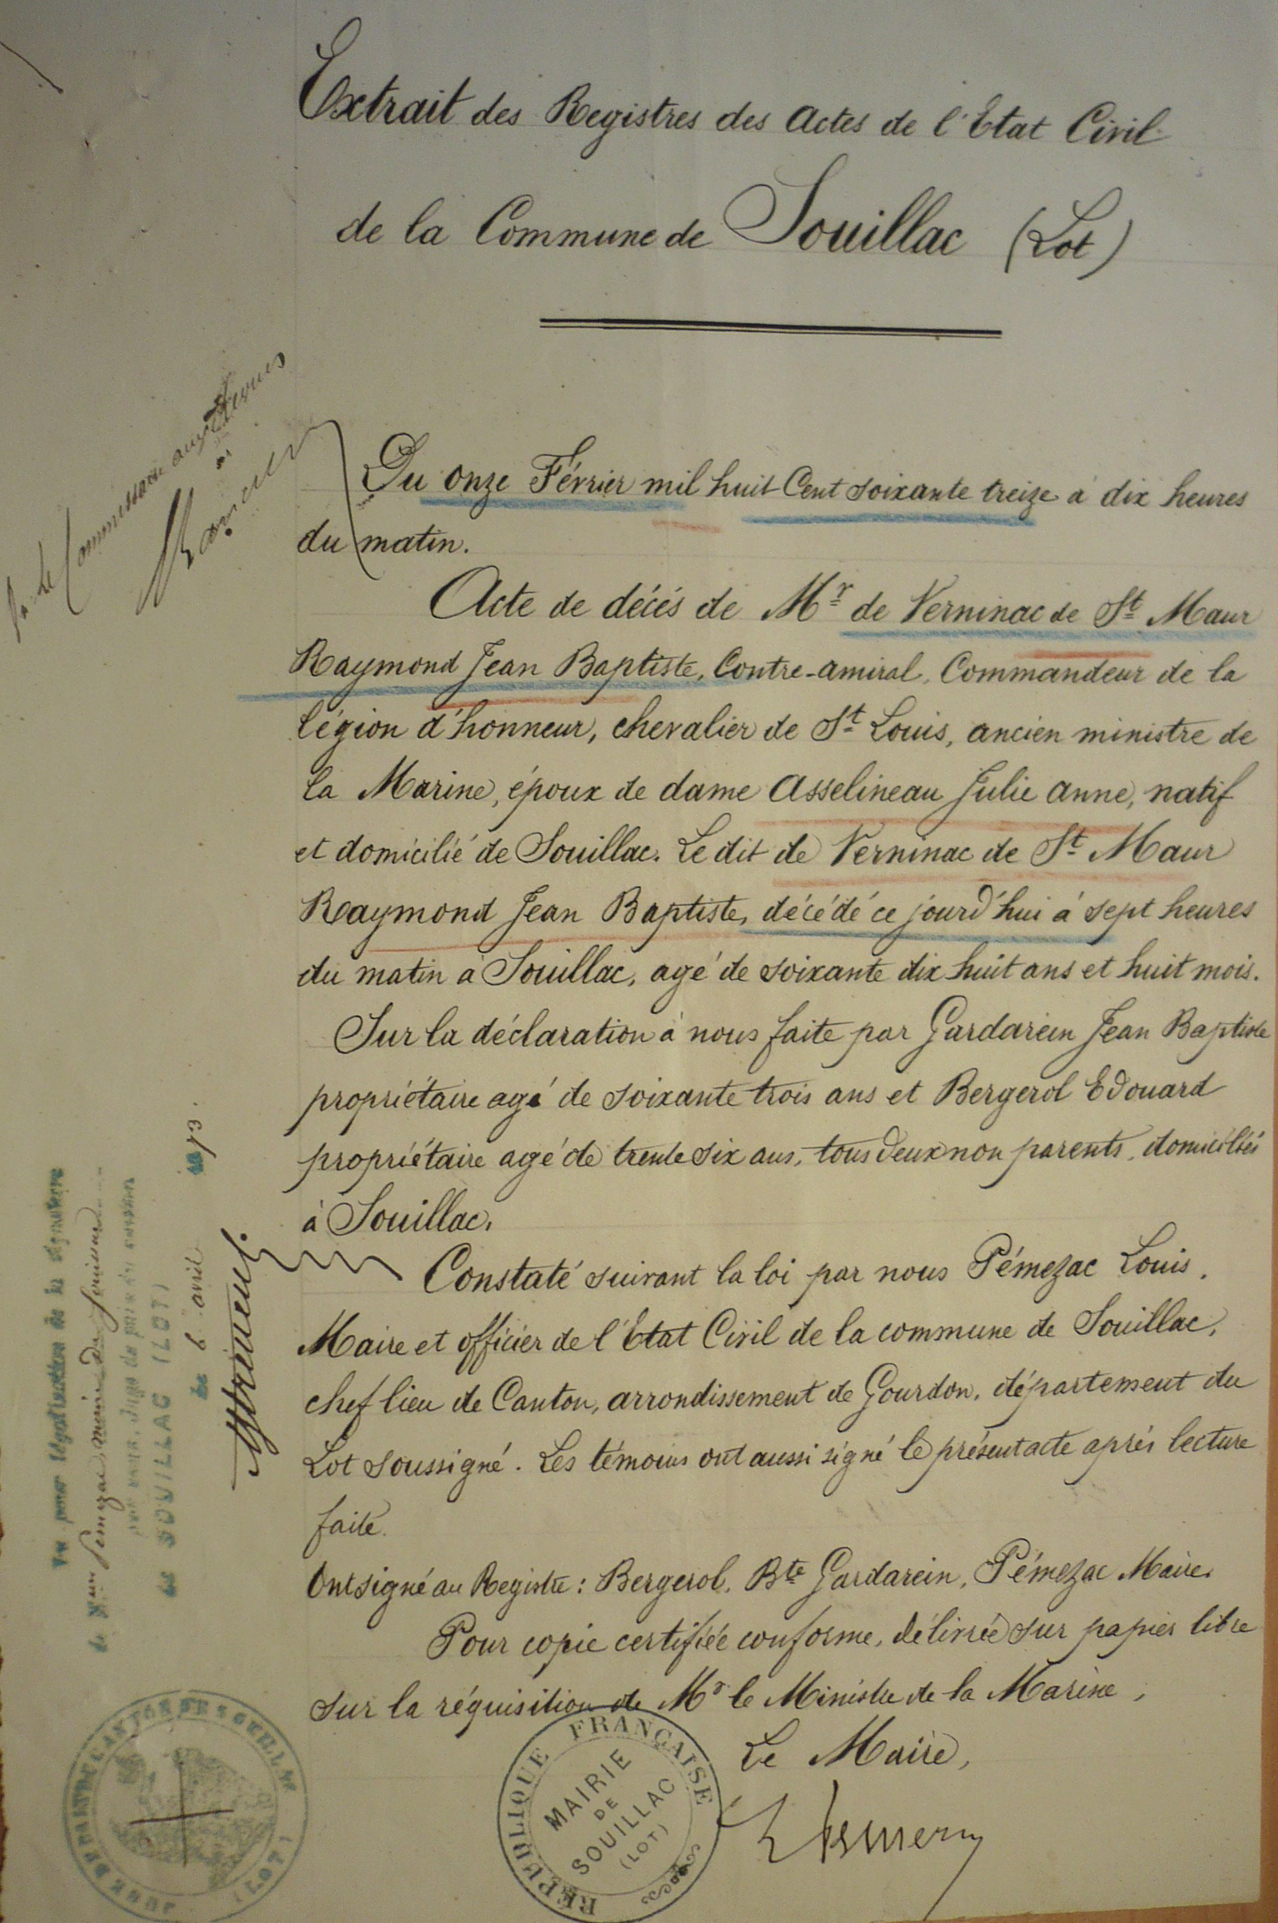 Extrait des Registres des Actes de l'Etat Civil
de la Commune de Souillac (Lot)
Du onze Février mil huit Cent soixante treize à dix heures
du matin.
Acte de décés de Mr de Verninac de St Maur
Raymond Jean Baptiste, Contre-amiral, Commandeur de la
légion d'honneur, chevalier de St Louis, ancien ministre de
la Marine, époux de dame Asselineau Julie Anne, natif
et domicilié de Souillac. Le dit de Verninac de St Maur
Raymond Jean Baptiste, décédé ce jourd'hui à sept heures
du matin à Souillac, agé de soixante dix huit ans et huit mois.
Sur la déclaration à nous faite par Gardarein Jean Baptiste
propriétaire agé de soixante trois ans et Bergerol Edouard
propriétaire agé de trente six ans, tous deux non parents, domiciliés
à Souillac.
Constaté suivant la loi par nous Pémezac Louis,
Maire et officier de l'Etat Civil de la commune de Souillac,
chef lieu de Canton, arrondissement de Gourdon, département du
Lot soussigné. Les témoins ont aussi signé le présent acte après lecture
faite.
Ont signé au Registre: Bergerol, Bte Gardarein, Pémezac Maire.
Pour copie certifiée conforme, délivrée sur papier libre
sur la réquisition de Mr le Ministre de la Marine,
Le Maire,
RÉPUBLIQUE FRANÇAISE
MAIRIE
DE
SOUILLAC
(LOT)
Le Commissaire aux
Vu pour légalisation de la signature
de Pemezac maire de
de SOUILLAC (LOT)
Le 6 avril